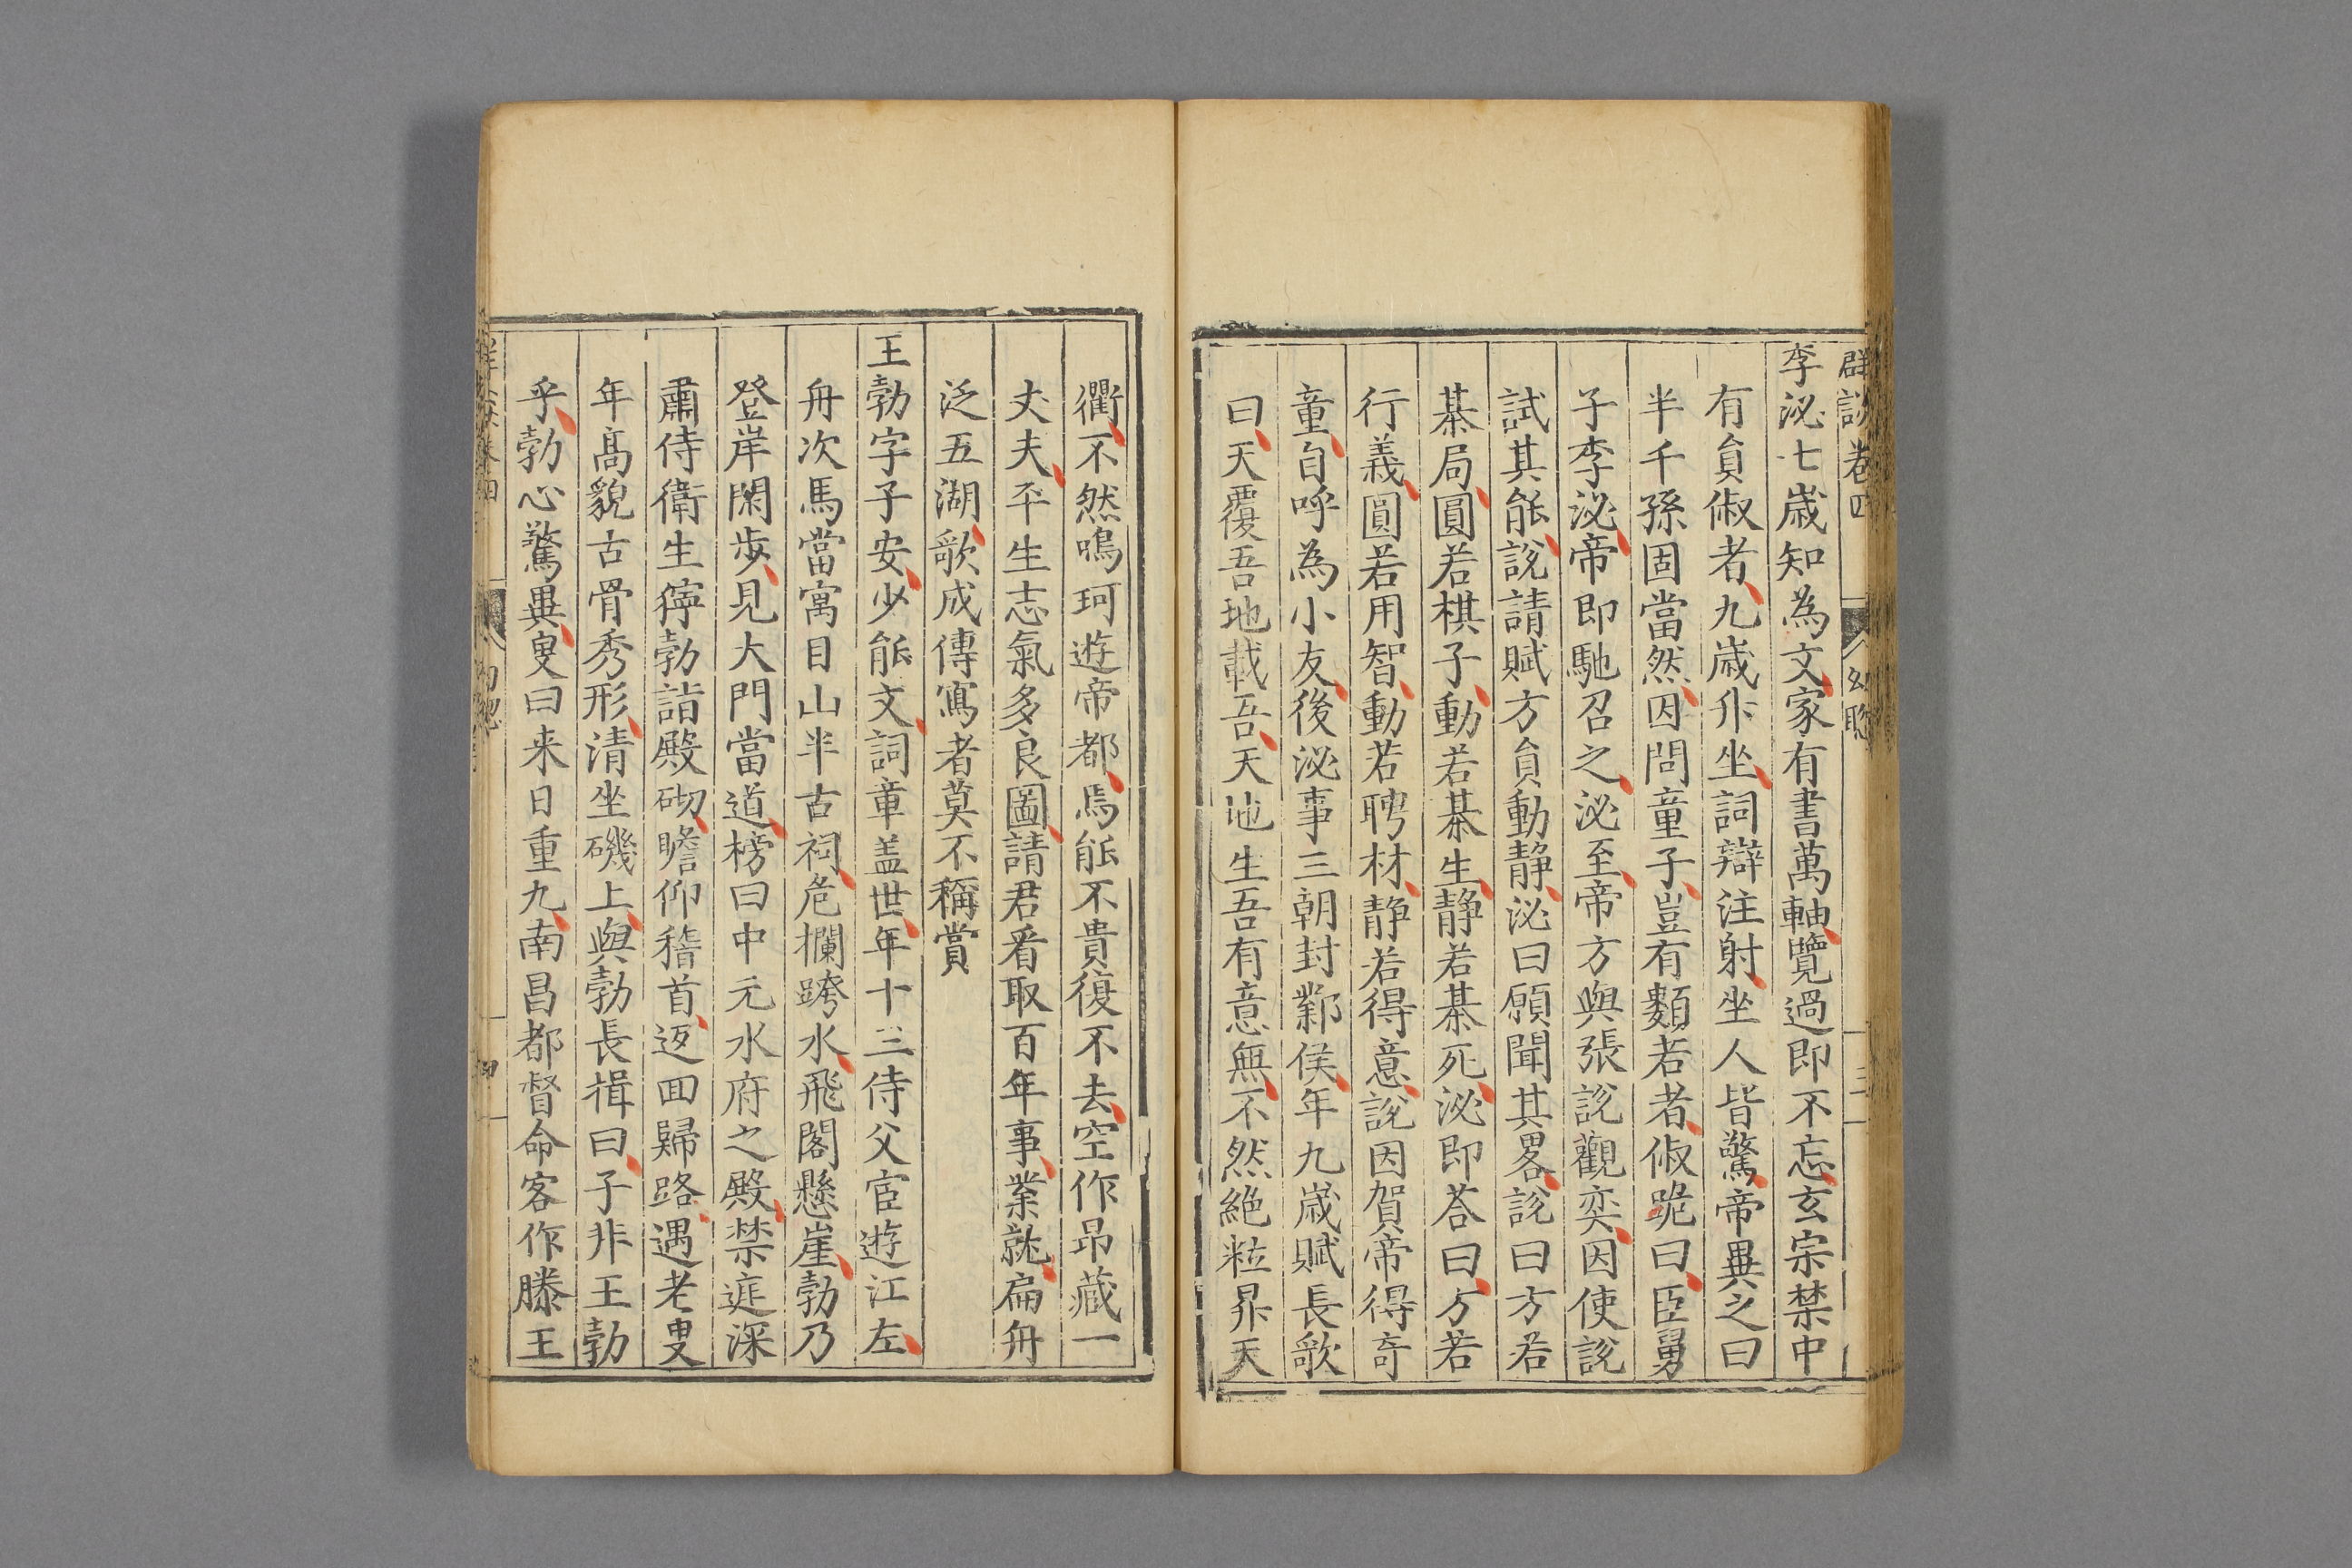 群談卷四 幼聰 三
李泌七歲知為文家有書萬軸覽過即不忘玄宗禁中
有貟俶者九歲升坐詞辯注射坐人皆驚帝異之曰
半千孫固當然因問童子豈有類若者俶跪曰臣舅
子李泌帝即馳召之泌至帝方與張說觀奕因使說
試其能說請賦方貟動静泌曰願聞其畧說曰方若
棊局圓若棋子動若棊生静若棊死泌即荅曰方若
行義圓若用智動若聘材静若得意說因賀帝得奇
童自呼為小友後泌事三朝封鄴侯年九歲賦長歌
曰天覆吾地載吾天地生吾有意無不然絶粒昇天
衢不然鳴珂遊帝都焉能不貴復不去空作昂藏一
丈夫平生志氣多良圖請君看取百年事業就扁舟
泛五湖歌成傳寫者莫不稱賞
王勃字子安少能文詞章盖世年十三侍父宦遊江左
舟次馬當寓目山半古祠危欄跨水飛閣懸崖勃乃
登岸閑歩見大門當道榜曰中元水府之殿禁庭深
肅侍衛生獰勃詣殿砌瞻仰稽首返回歸路遇老叟
年髙貌古骨秀形清坐磯上與勃長揖曰子非王勃
乎勃心驚異叟曰来日重九南昌都督命客作滕王